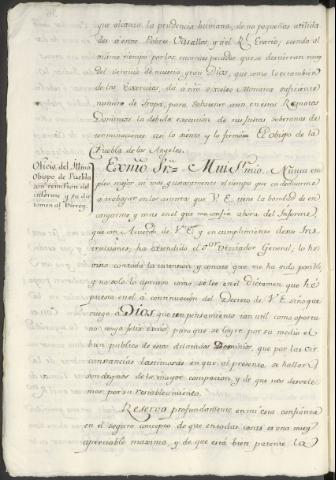 que alcanza la prudencia humana, de no pequeñas utilida
des a estos Pobres Vasallos, y a el Rl. Erario, siendo al
mismo tiempo
del servicio de nuestro gran Dios, que
de los Exercitos, da a su excelso Monarca suficiente
numero de Tropa, para sobstener aun en estos Remotos
Dominios la debida execucion de sus justas soberanas de
terminaciones así lo siento y lo firmo = El obispo de la
Puebla de los Angeles.
Oficio del Illmo.
Obispo de Puebla
con remision del
informe y su dic
tamen al Virrey.
Exmô Sr = Mui Sr. mio. Nunca em
pleo mejor ni mas gustosamente el tiempo que en dedicarme
a trabajar en los asuntos que V. E. tiene la bondad de en
cargarme y mas en el que me confia ahora del Informe,
que con Acuerdo de V. E. y en cumplimiento de sus Ins
trucciones, ha extendido el Sor. Visitador General, lo he
mirado con toda la atencion y conato que me ha sido posible
y no solo lo apruevo como se lee en el Dictamen que he
puesto en el a continuacion del Decreto de V. E. sino que
ruego a Dios que este pensamiento tan util como oportu
no tenga feliz exito, para que se logre por su medio el
bien publico de estos dilatados Dominios, que por las cir
cunstancias lastimosas en que al presente se hallan
son dignos de la mayor compasion, y de que nos desvele
mos por su restablecimiento.
Reserva profundamente en mi esta confianza
en el seguro concepto de que en todas cosas es una muy
apreciable maxima, y de que está bien patente la